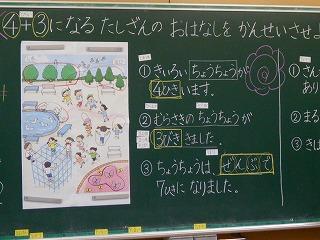 ④+③になる たしざんの おはなしを かんせいさせよ
① きいろい ちょうちょうが
4ひきいます。
② むらさきの ちょうちょうが
3びききました。
③ ちょうちょうは、ぜんぶで
7ひきに なりました。
① さん
あり
② まる
③ きは